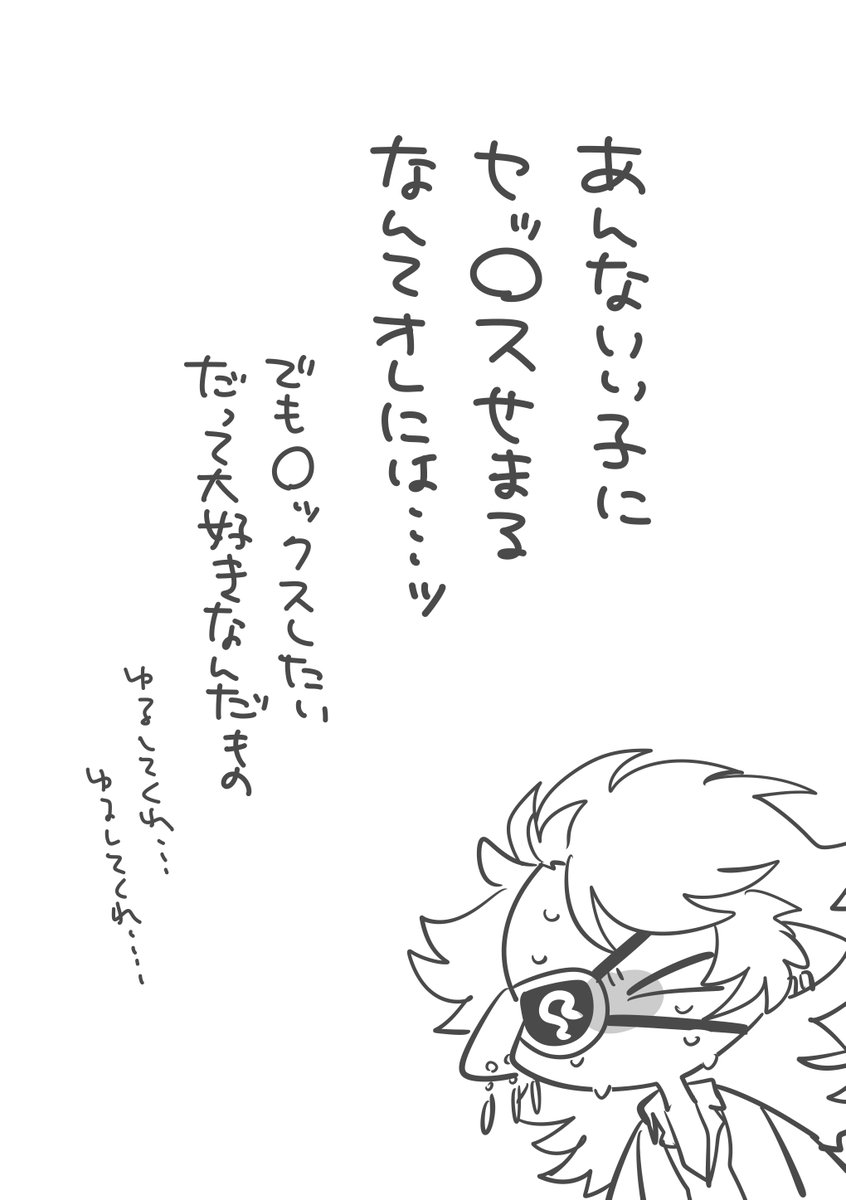 あんないい子に
セッ〇スせまる
なんてオレには…ッ
でも〇ックスしたい
だって大好きなんだもの
ゆるしてくれ…
ゆるしてくれ…